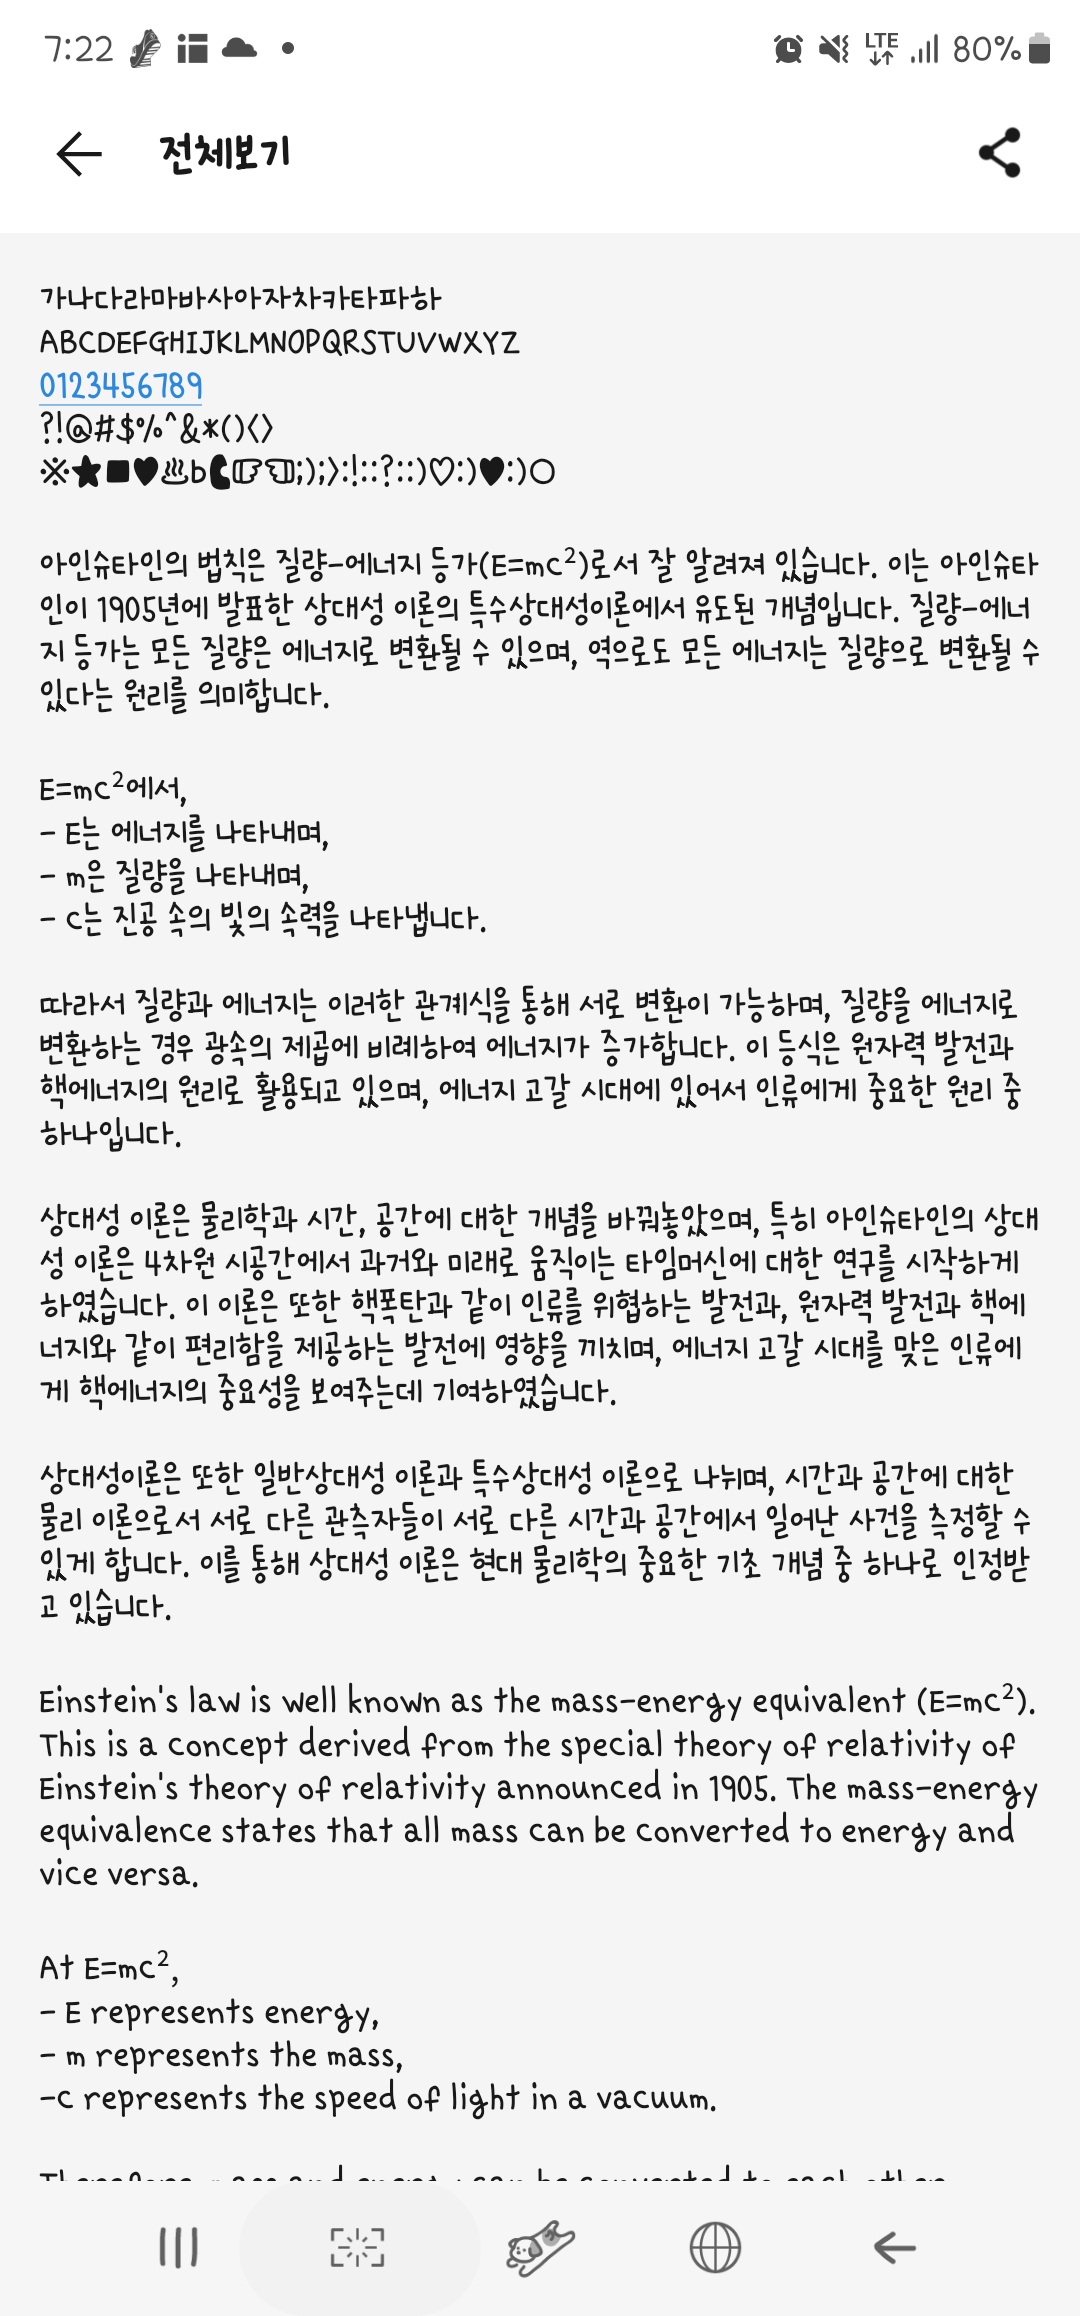 7:22
LTE
80%
전체보기
가나다라마바사아자차카타파하
ABCDEFGHIJKLMNOPQRSTUVWXYZ
0123456789
?!@#$%^&*()<>
※★■♥♨b☎☞☜;);>:!::?::)♡:)♥:)○
아인슈타인의 법칙은 질량-에너지 등가(E=mc²)로서 잘 알려져 있습니다. 이는 아인슈타
인이 1905년에 발표한 상대성 이론의 특수상대성이론에서 유도된 개념입니다. 질량-에너
지 등가는 모든 질량은 에너지로 변환될 수 있으며, 역으로도 모든 에너지는 질량으로 변환될 수
있다는 원리를 의미합니다.
E=mc²에서,
- E는 에너지를 나타내며,
- m은 질량을 나타내며,
- c는 진공 속의 빛의 속력을 나타냅니다.
따라서 질량과 에너지는 이러한 관계식을 통해 서로 변환이 가능하며, 질량을 에너지로
변환하는 경우 광속의 제곱에 비례하여 에너지가 증가합니다. 이 등식은 원자력 발전과
핵에너지의 원리로 활용되고 있으며, 에너지 고갈 시대에 있어서 인류에게 중요한 원리 중
하나입니다.
상대성 이론은 물리학과 시간, 공간에 대한 개념을 바꿔놓았으며, 특히 아인슈타인의 상대
성 이론은 4차원 시공간에서 과거와 미래로 움직이는 타임머신에 대한 연구를 시작하게
하였습니다. 이 이론은 또한 핵폭탄과 같이 인류를 위협하는 발전과, 원자력 발전과 핵에
너지와 같이 편리함을 제공하는 발전에 영향을 끼치며, 에너지 고갈 시대를 맞은 인류에
게 핵에너지의 중요성을 보여주는데 기여하였습니다.
상대성이론은 또한 일반상대성 이론과 특수상대성 이론으로 나뉘며, 시간과 공간에 대한
물리 이론으로서 서로 다른 관측자들이 서로 다른 시간과 공간에서 일어난 사건을 측정할 수
있게 합니다. 이를 통해 상대성 이론은 현대 물리학의 중요한 기초 개념 중 하나로 인정받
고 있습니다.
Einstein's law is well known as the mass-energy equivalent (E=mc²).
This is a concept derived from the special theory of relativity of
Einstein's theory of relativity announced in 1905. The mass-energy
equivalence states that all mass can be converted to energy and
vice versa.
At E=mc²,
- E represents energy,
- m represents the mass,
-c represents the speed of light in a vacuum.
Therefore, mass and energy can be converted to each other